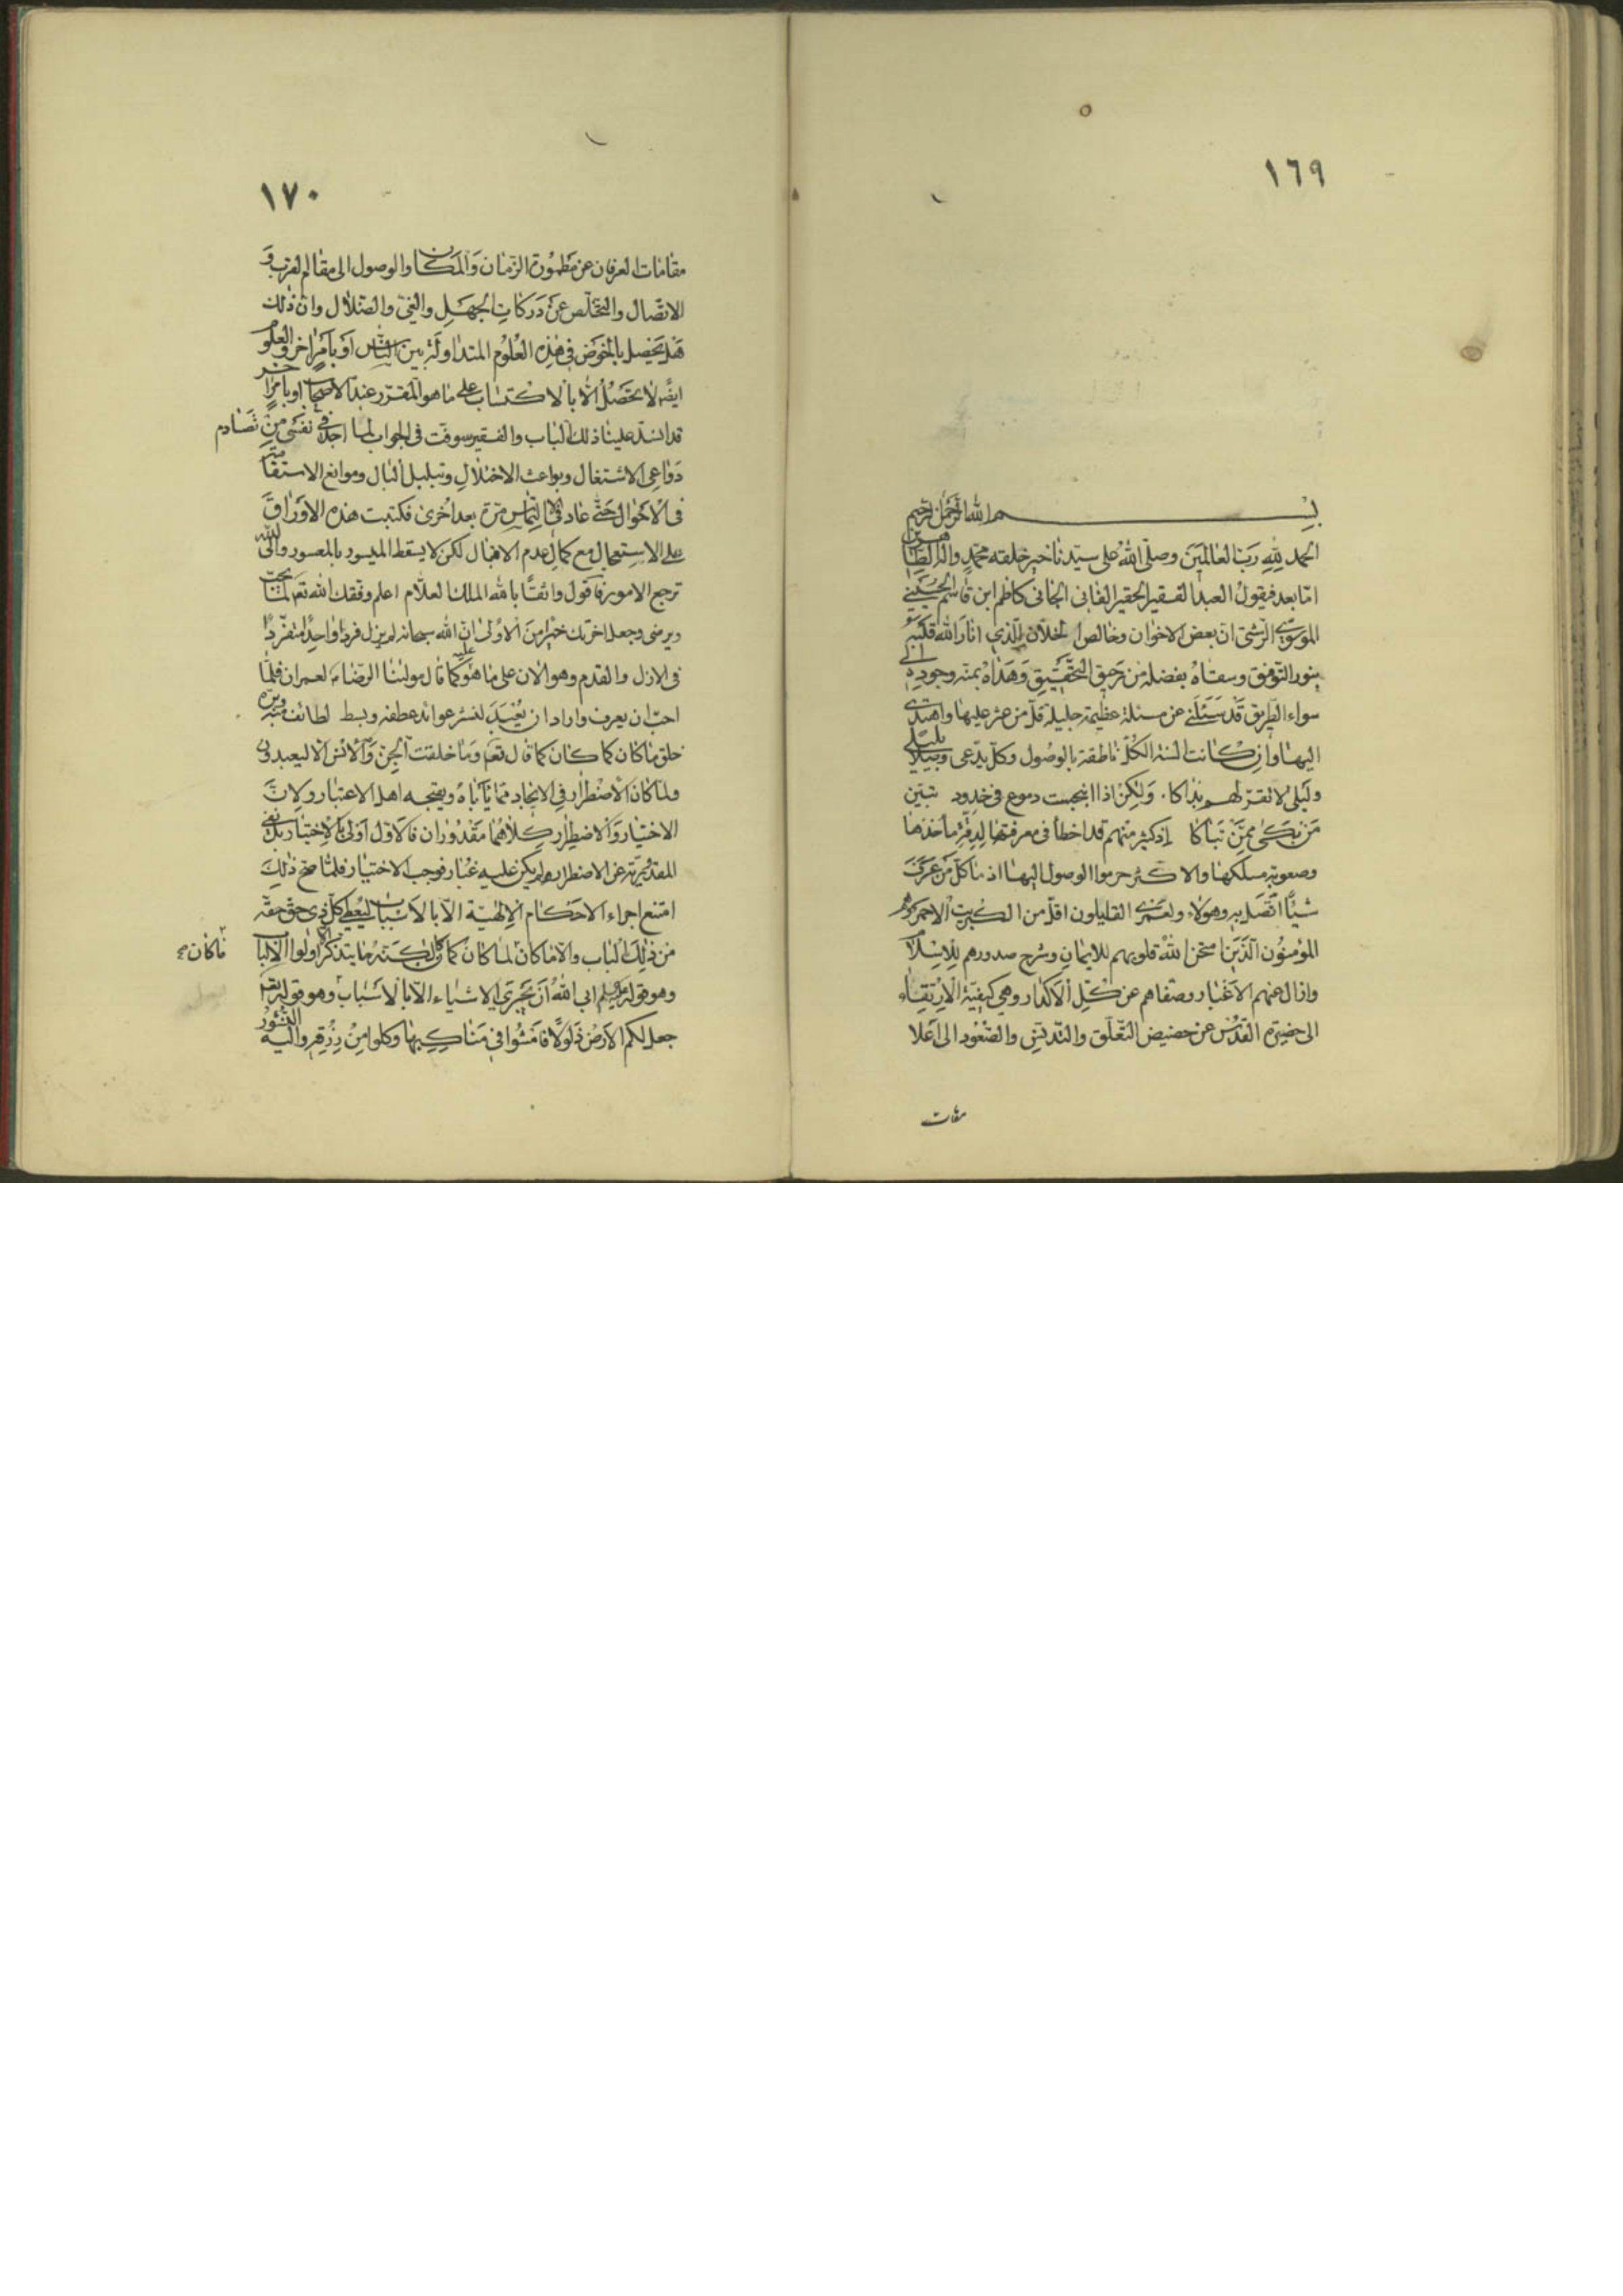 ١٦٩
بسم الله الرحمن الرحيم
الحمد لله رب العالمين وصلى الله على سيدنا خير خلقه محمد واله الطاهرين
اما بعد فيقول العبد الفقير الحقير الفانى الجانى كاظم ابن قاسم الحسينى
الموسوى الرشتى ان بعض الاخوان وخالص الخلان الذى انار الله قلبه
بنور التوفيق وسقاه بفضله من رحيق التحقيق وهداه بمنه وجوده الى
سواء الطريق قد سئلنى عن مسئلة عظيمة جليلة قل من عثر عليها واهتدى
اليها وان كانت السنة الكل ناطقة بالوصول وكل يدعى وصلا بليلى
وليلى لا تقر لهم بذاكا . ولكن اذا انبجست دموع فى خدود تبين
من بكى ممن تباكا اذ كثير منهم قد اخطأ فى معرفتها لدقة ماخذها
وصعوبة مسلكها والاكثر حرموا الوصول اليها اذ ما كل من عرف
شيئا اتصل به وهولاء ولعمرى القليلون اقل من الكبريت الاحمر وهم
المؤمنون الذين امتحن الله قلوبهم للايمان وشرح صدورهم للاسلام
وازال عنهم الاغبار وصفاهم عن كل الاكدار وهى كيفية الارتقاء
الى حضيرة القدس عن حضيض التعلق والتدنس والصعود الى اعلا
مقامات
١٧٠
مقامات العرفان عن مطمورة الزمان والمكان والوصول الى مقام القرب و
الاتصال والتخلص عن دركات الجهل والغى والضلال وان ذلك
هل يحصل بالخوض فى هذه العلوم المتداولة بين الناس او بامر اخر والعلوم
ايضا لا يحصل الا بالاكتساب على ما هو المقرر عند الاصحاب او بامر اخر
قد انسد علينا ذلك الباب والفقير سوفت فى الجواب لما اجد فى نفسى من تصادم
دواعى الاشتغال وبواعث الاختلال وتبلبل البال وموانع الاستقامة
فى الاحوال حتى عاد فى الالتماس مرة بعد اخرى فكتبت هذه الاوراق
على الاستعجال مع كمال عدم الاقبال لكن لا يسقط الميسور بالمعسور والى الله
ترجع الامور فاقول واثقا بالله الملك العلام اعلم وفقك الله تعالى لما يحب
ويرضى وجعل اخرتك خيرا من الاولى ان الله سبحانه لم يزل فردا واحدا متفردا
فى الازل والقدم وهو الان على ما هو عليه كما قال مولينا الرضا لعمران فلما
احب ان يعرف واراد ان يعبد لنشر عوائد عطفه وبسط لطائف وبره
خلق ما كان كما كان كما قال تعالى وما خلقت الجن والانس الا ليعبدون
ولما كان الاضطرار فى الايجاد مما ياباه ويمجه اهل الاعتبار ولان
الاختيار والاضطرار كلاهما مقدوران فالاول اولى بالاختيار بل
المقد عن الاضطرار ولم يكن عليه غبار فوجب الاختيار فلما صح ذلك
امتنع اجراء الاحكام الالهية الا بالاسباب ليعطى كل ذى حق حقه
من ذلك الباب والا ما كان لما كان كما كان لكنه انما يتذكر اولوا الالباب
ما كان
وهو قوله ابى الله ان يجرى الاشياء الا بالاسباب وهو قوله تعالى
جعل لكم الارض ذلولا فامشوا فى مناكبها وكلوا من رزقه واليه النشور